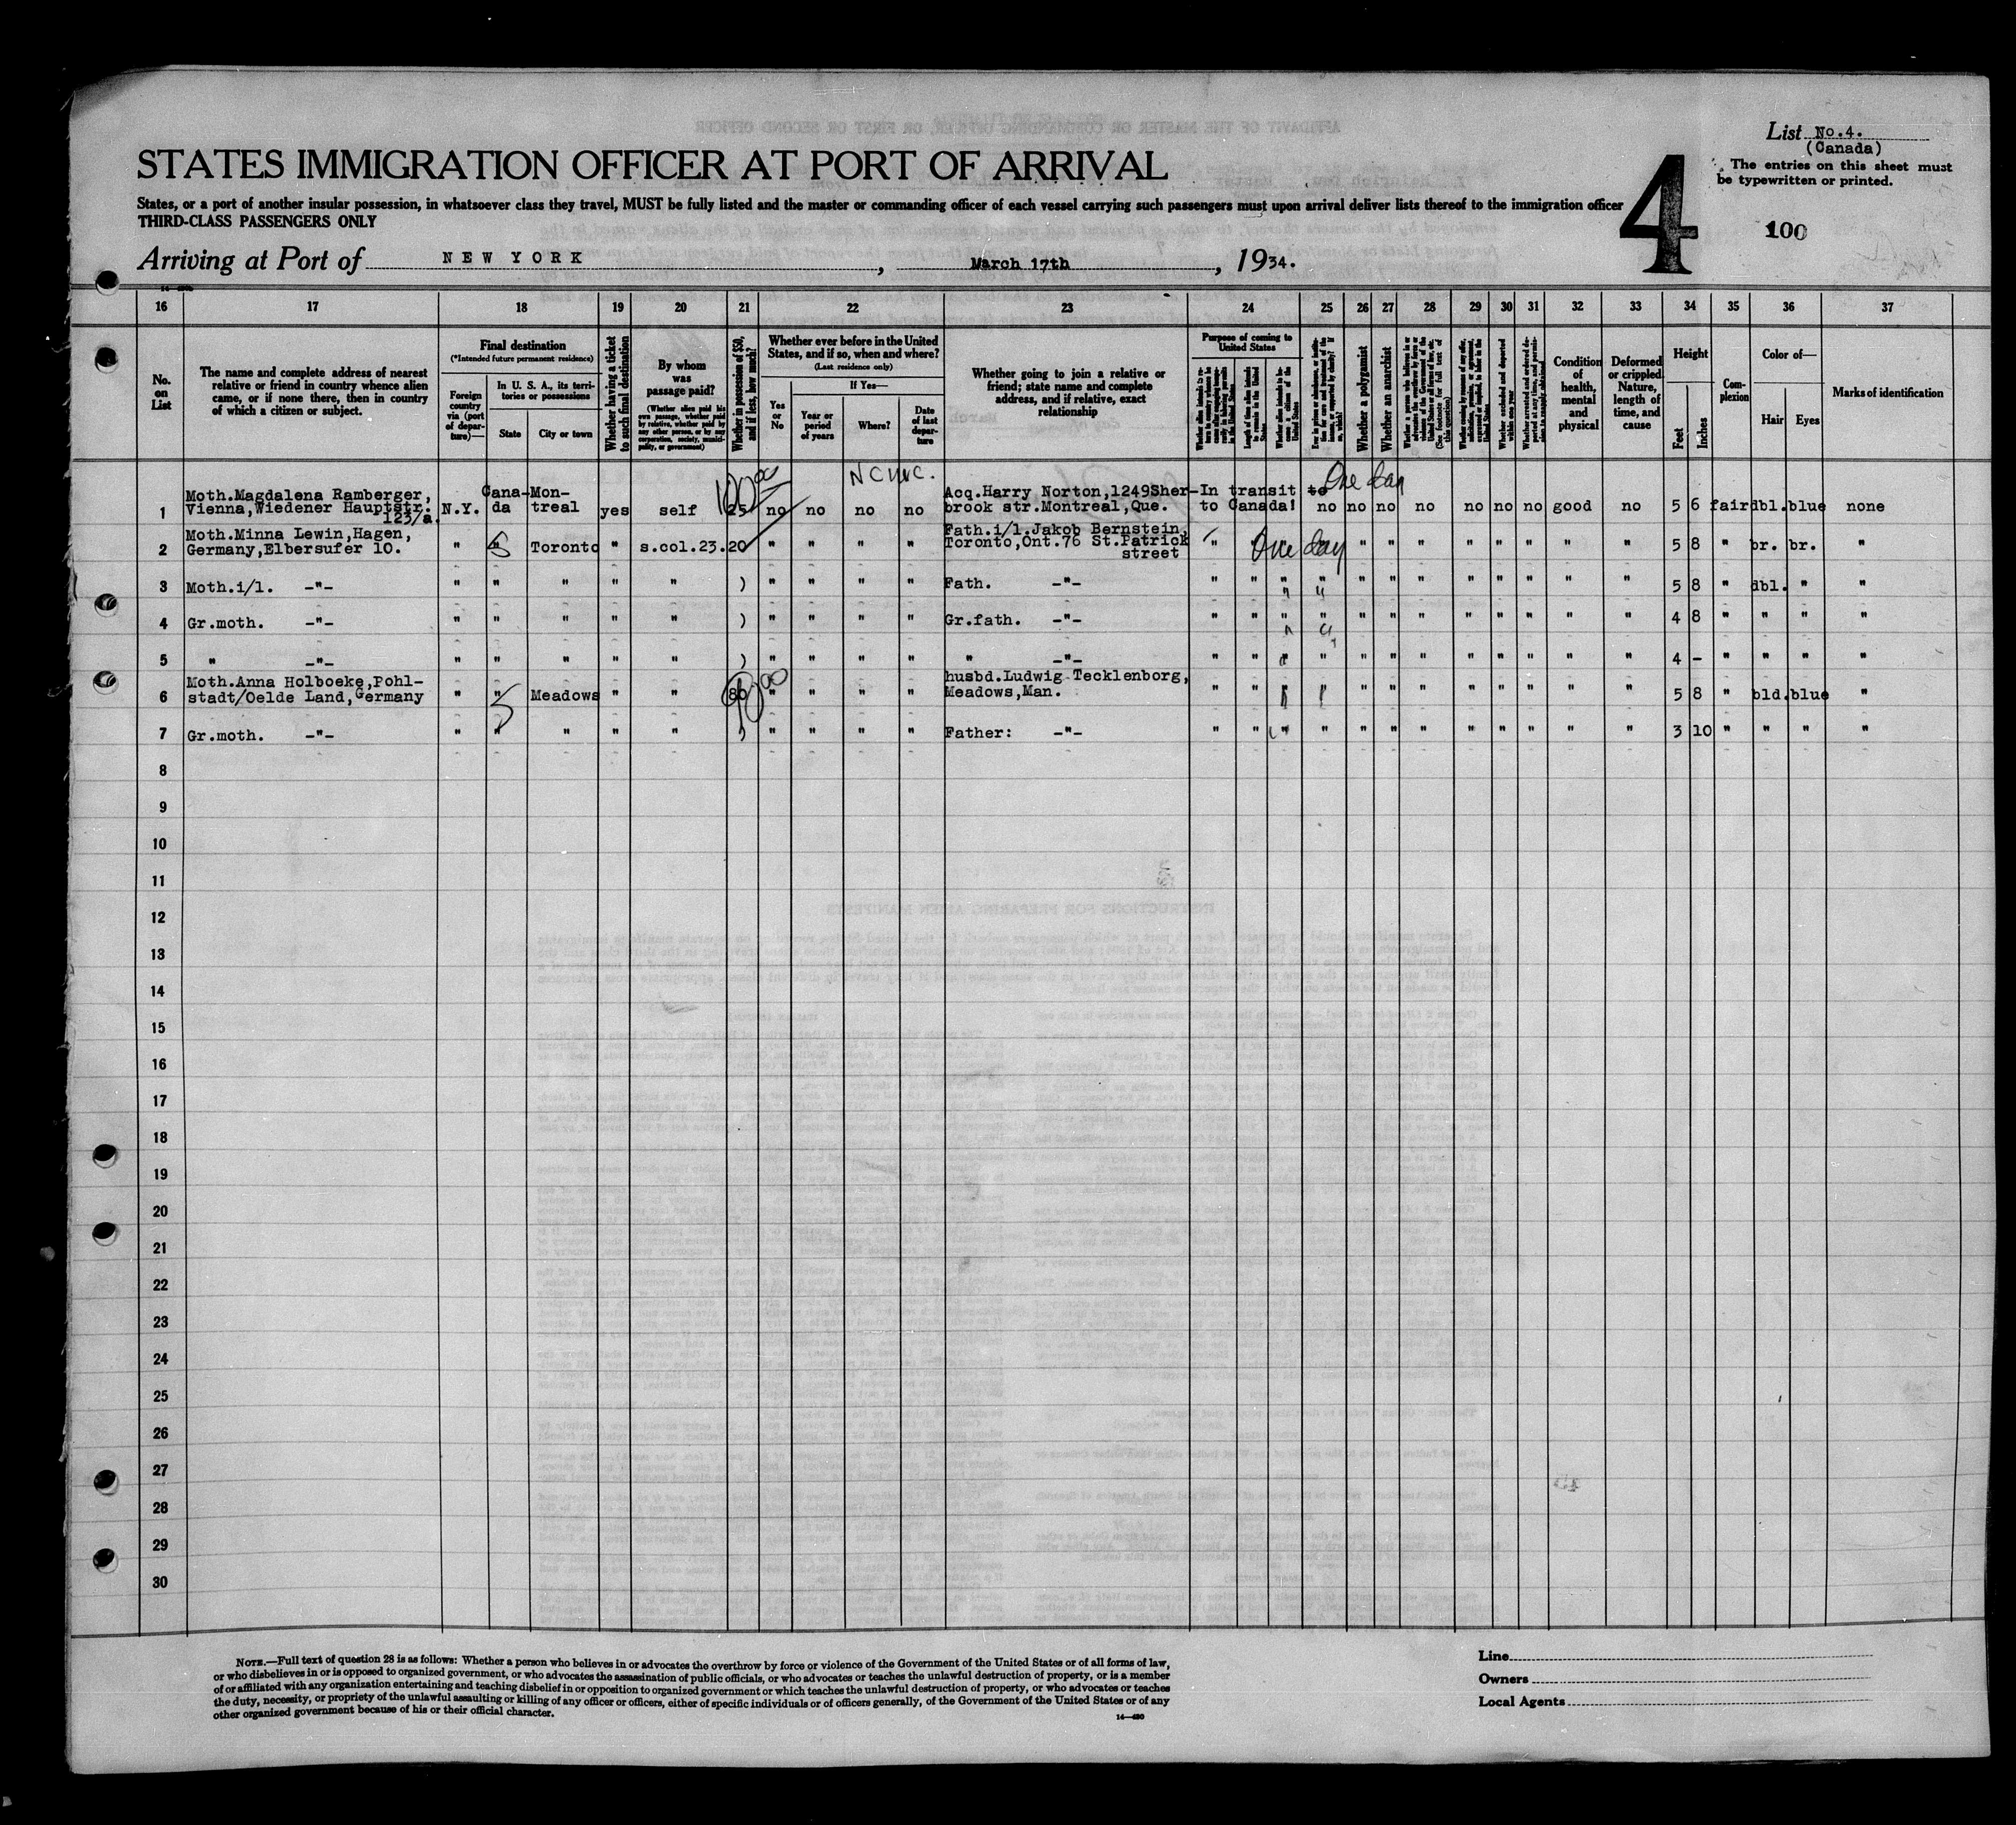 List No.4.
(Canada)
The entries on this sheet must
be typewritten or printed.
4
100
STATES IMMIGRATION OFFICER AT PORT OF ARRIVAL
States, or a port of another insular possession, in whatsoever class they travel, MUST be fully listed and the master or commanding officer of each vessel carrying such passengers must upon arrival deliver lists thereof to the immigration officer
THIRD-CLASS PASSENGERS ONLY
Arriving at Port of NEW YORK, March 17th, 1934.
16 17 18 19 20 21 22 23 24 25 26 27 28 29 30 31 32 33 34 35 36 37
No. on List
The name and complete address of nearest
relative or friend in country whence alien
came, or if none there, then in country
of which a citizen or subject.
Final destination
(*Intended future permanent residence)
Foreign country via (port of departure)—
In U. S. A., its territories or possessions
State
City or town
Whether having a ticket to such final destination
By whom was passage paid?
(Whether alien paid his own passage, whether paid by relative, whether paid by any other person, or by any corporation, society, municipality, or government)
Whether in possession of $50, and if less, how much?
Whether ever before in the United
States, and if so, when and where?
(Last residence only)
Yes or No
If Yes—
Year or period of years
Where?
Date of last departure
Whether going to join a relative or
friend; state name and complete
address, and if relative, exact
relationship
Purpose of coming to United States
Whether a polygamist
Whether an anarchist
Condition of health, mental and physical
Deformed or crippled. Nature, length of time, and cause
Height
Feet
Inches
Complexion
Color of—
Hair
Eyes
Marks of identification
100.00
One day
1 Moth.Magdalena Ramberger,
Vienna,Wiedener Hauptstr.
123/a.
N.Y. Cana-da Mon-treal yes self 25 no no no no
Acq.Harry Norton,1249Sher-
brook str.Montreal,Que.
In transit to
to Canada! no no no no no no no good no 5 6 fair dbl. blue none
2 Moth.Minna Lewin,Hagen,
Germany,Elbersufer 10.
" " Toronto " s.col.23. 20 " " " "
Father.i/l.Jakob Bernstein,
Toronto,Ont.76 St.Patrick
street
" One day " " " " " " " " " 5 8 " br. br. "
3 Moth.i/l. -"- " " " " " ) " " " " Father. -"- " " " " " " " " " " " " " 5 8 " dbl. " "
4 Gr.moth. -"- " " " " " ) " " " " Gr.fath. -"- " " " " " " " " " " " " " 4 8 " " " "
5 " -"- " " " " " ) " " " " " -"- " " " " " " " " " " " " 4 - " " " "
6 Moth.Anna Holboeke,Pohl-
stadt/Oelde Land,Germany
" " Meadows " " 80 " " " "
husbd.Ludwig Tecklenborg,
Meadows,Man.
" " " " " " " " " " " 5 8 " bld. blue "
7 Gr.moth. -"- " " " " " ) " " " " Father: -"- " " " " " " " " " " " " " 3 10 " " " "
8
9
10
11
12
13
14
15
16
17
18
19
20
21
22
23
24
25
26
27
28
29
30
NOTE.—Full text of question 28 is as follows: Whether a person who believes in or advocates the overthrow by force or violence of the Government of the United States or of all forms of law,
or who disbelieves in or is opposed to organized government, or who advocates the assassination of public officials, or who advocates or teaches the unlawful destruction of property, or is a member
of or affiliated with any organization entertaining and teaching disbelief in or opposition to organized government or which teaches the unlawful destruction of property, or who advocates or teaches
the duty, necessity, or propriety of the unlawful assaulting or killing of any officer or officers, either of specific individuals or of officers generally, of the Government of the United States or of any
other organized government because of his or their official character.
14—480
Line
Owners
Local Agents